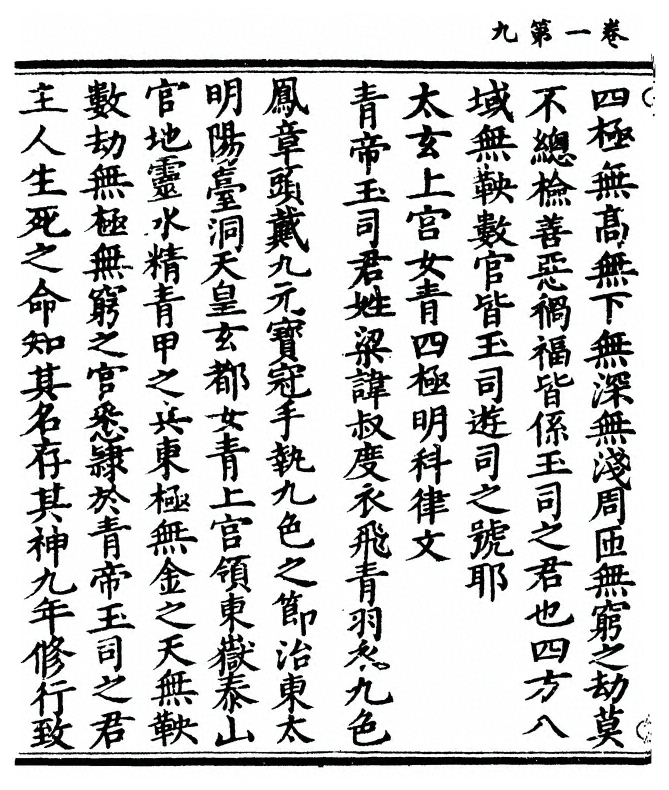 卷一第九
四極無髙無下無深無淺周匝無窮之劫莫
不總檢善惡禍福皆係玉司之君也四方八
域無鞅數官皆玉司遊司之號耶
太玄上宫女青四極明科律文
青帝玉司君姓梁諱叔度衣飛青羽衣九色
鳳章頭戴九元寳冠手執九色之節治東太
明陽臺洞天皇玄都女青上宫領東嶽泰山
官地靈水精青甲之兵東極無金之天無鞅
數劫無極無窮之官悉隸於青帝玉司之君
主人生死之命知其名存其神九年修行致